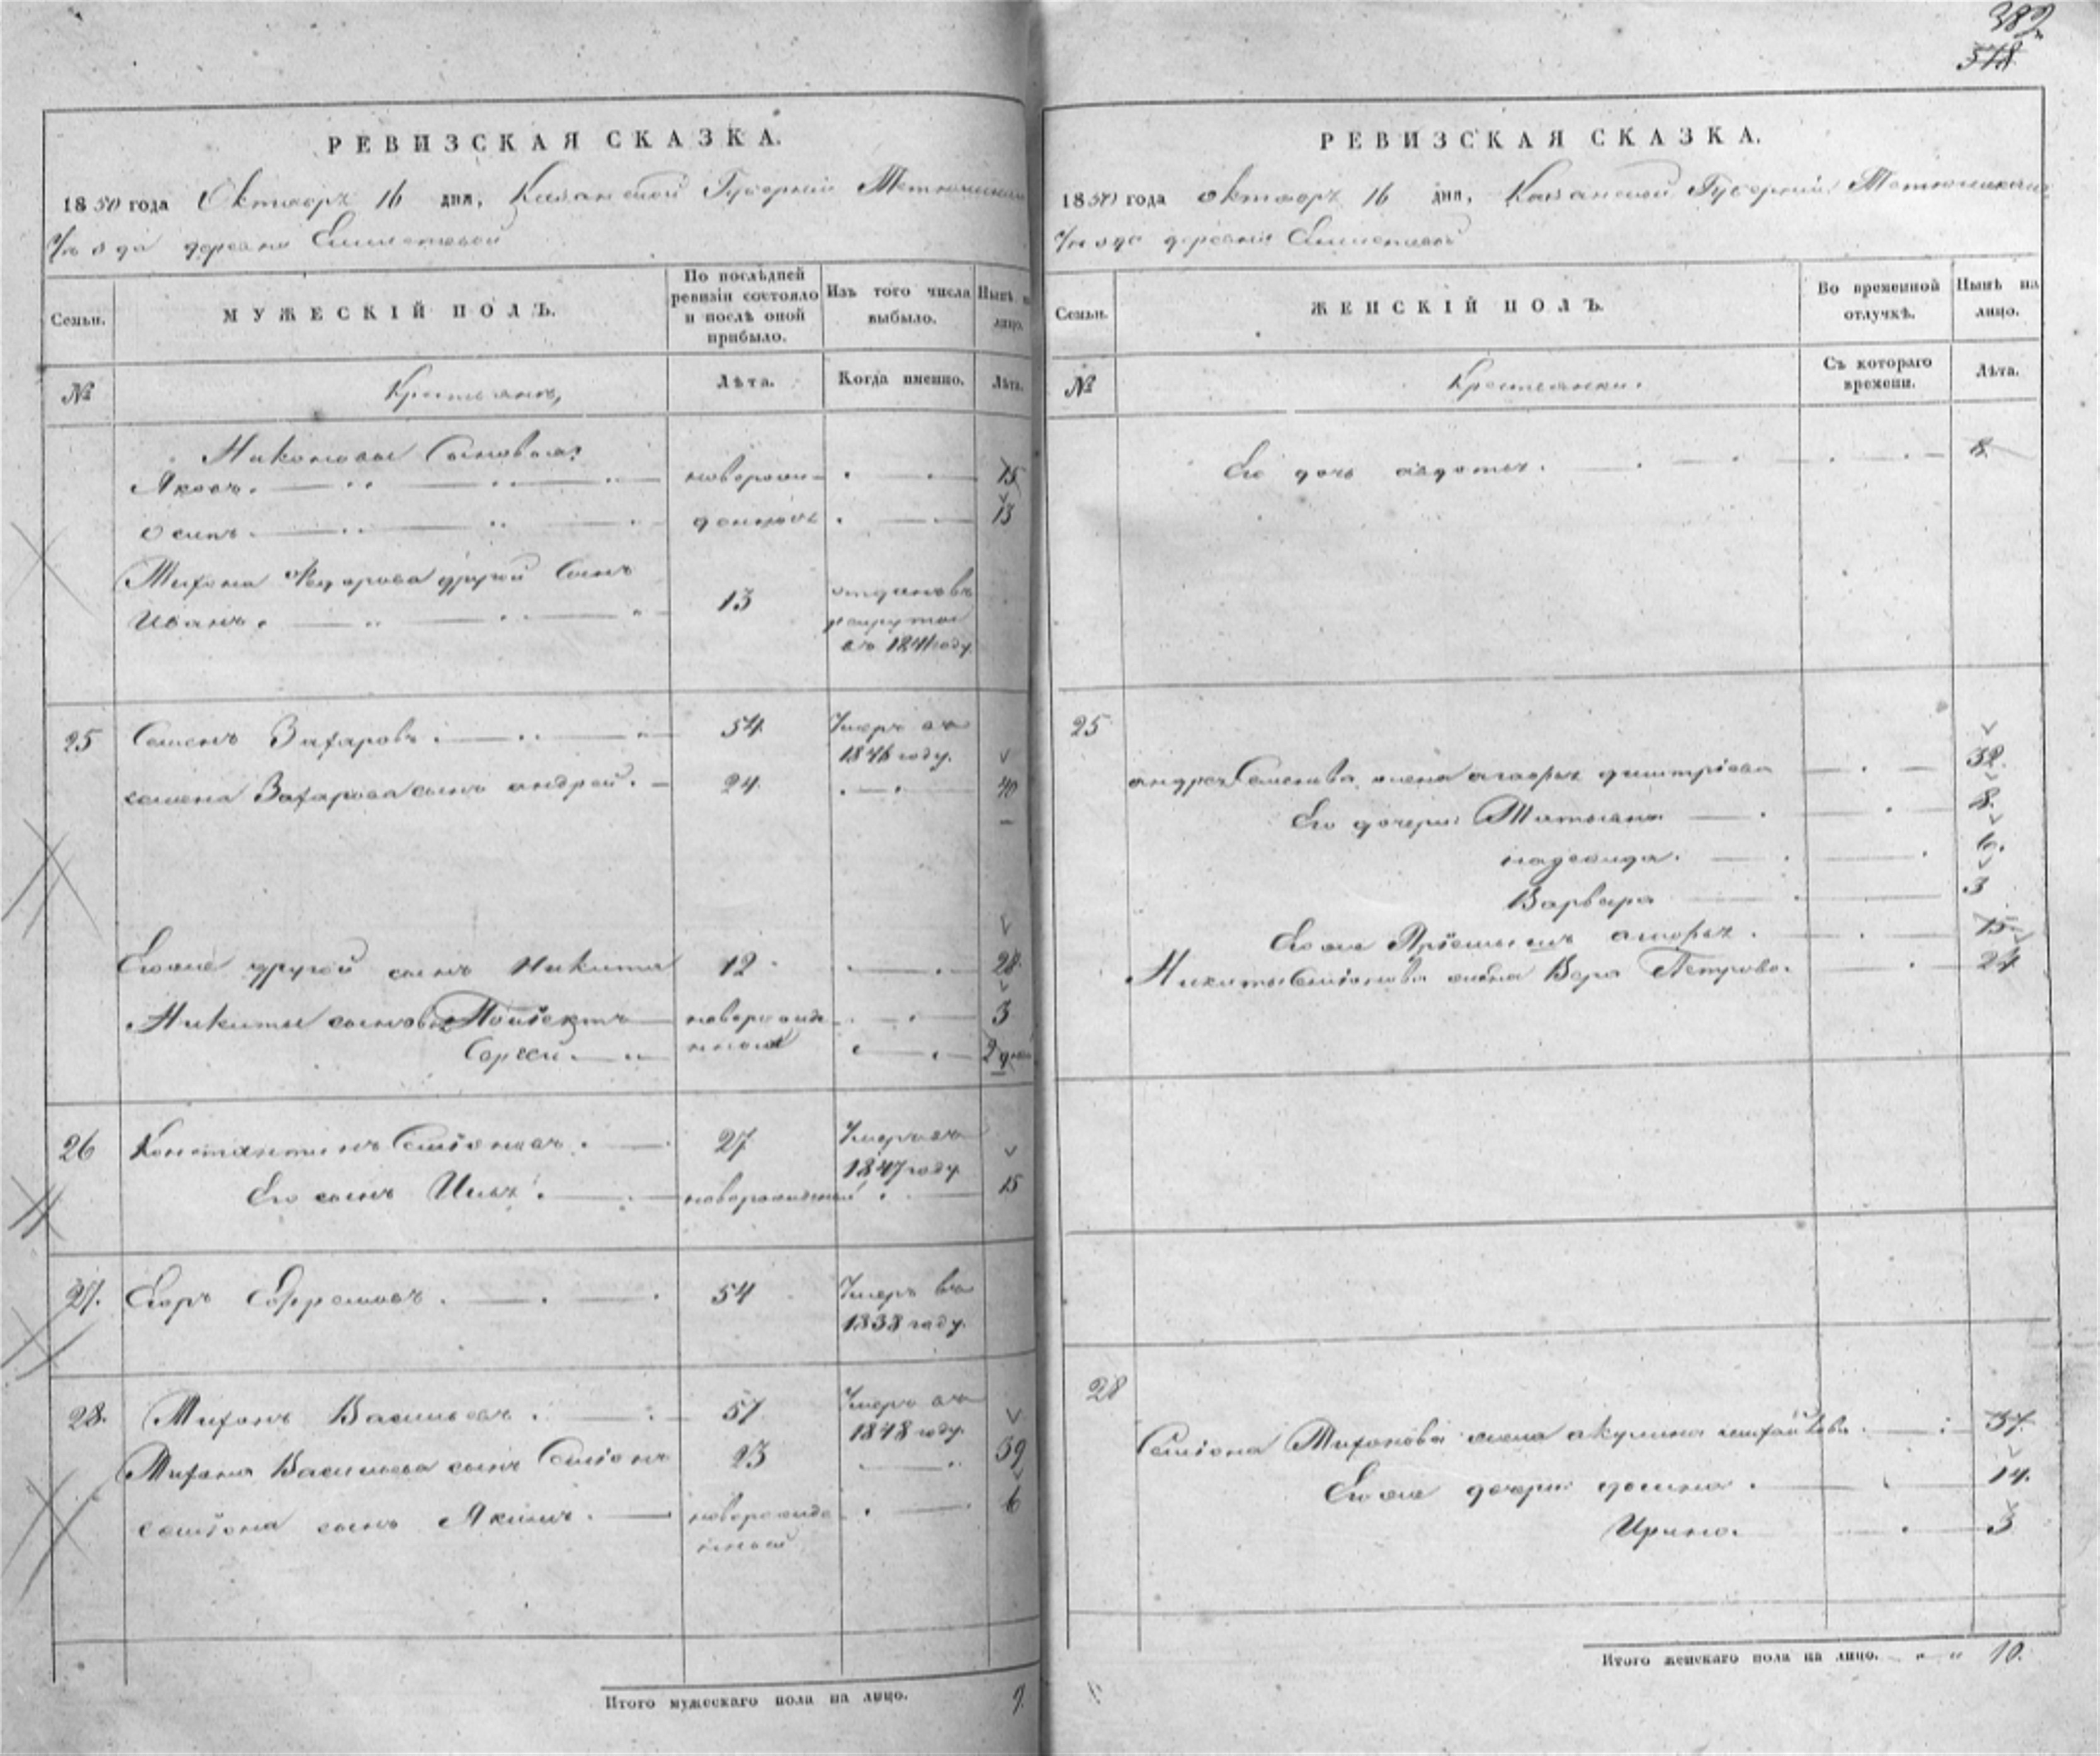 389.
518
РЕВИЗСКАЯ СКАЗКА.
1850 года Октябрь 16 дня, Казанской Губернии Тетюшскаго
Уѣзда деревни
Семьи.
МУЖЕСКІЙ ПОЛЪ.
По послѣдней ревизіи состояло и послѣ оной прибыло.
Изъ того числа выбыло.
Нынѣ на лицо.
№
Крестьянъ,
Лѣта.
Когда именно.
Лѣта.
Никоновы сыновья:
Яковъ. новорож 15
Осипъ. денные 13
Тифона Федорова другой сынъ
Иванъ. 13 отданъ въ
рекруты
въ 1841 году.
25 Семенъ Захаровъ. 54 Умеръ въ
1846 году.
семена Захарова сынъ андрей. 24 40
Егоже другой сынъ Никита 12 28
Никиты сыновья новорожде 3
Сергей. нные 2 дней
26 Константинъ Семіоновъ. 27 Умеръ въ
1847 году.
Его сынъ Илья. новорожденный 15
27. Егоръ Ефремовъ. 54 Умеръ въ
1838 году.
28. Тифонъ Васильевъ. 57 Умеръ въ
1848 году.
Тифона Васильева сынъ Семіонъ 23 39
семіона сынъ Якимъ. новорожде 6
нный
Итого мужескаго пола на лицо. 9.
РЕВИЗСКАЯ СКАЗКА.
1850 года октябрь 16 дня, Казанской Губерніи Тетюшскаго
Уѣзда деревни
Семьи.
ЖЕНСКІЙ ПОЛЪ.
Во временной отлучкѣ.
Нынѣ на лицо.
№
Крестьянки.
Съ котораго времени.
Лѣта.
Его дочь авдотья. 8.
25
андрея Семенова жена агафья дмитріева 32.
Его дочери Татьяна 8.
надежда. 6.
Варвара 3
Егоже агафья. 15
Никиты Семіонова жена Вера Петрова. 24
28
Семіона Тифонова жена акулина 37.
Егоже дочери домна. 14.
Ирина. 3
Итого женскаго пола на лицо. 10.